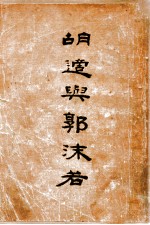 胡適與郭沫若